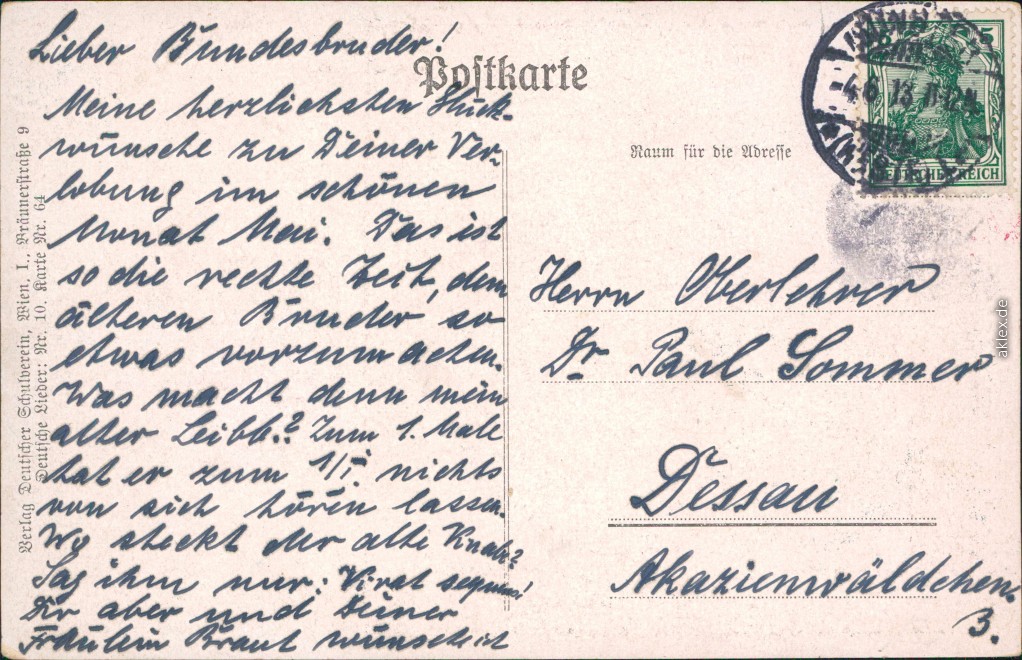 Lieber Bundesbruder!
Meine herzlichsten Glück-
wünsche zu Deiner Ver-
lobung im schönen
Monat Mai. Das ist
so die rechte Zeit, dem
älteren Bruder so
etwas vorzumachen.
Was macht denn mein
alter Leibb.? Zum 1. Male
hat er zum 1/I. nichts
von sich hören lassen.
Wo steckt der alte Knabe?
Sag ihm nur: Vivat sequens!
Dir aber und Deiner
Fräulein Braut wünsche ich
Postkarte
Raum für die Adresse
DEUTSCHES REICH
5
Herrn Oberlehrer
Dr. Paul Sommer
Dessau
Akazienwäldchen
3.
Verlag Deutscher Schulverein, Wien, I., Bräunerstraße 9
Deutsche Lieder: Nr. 10. Karte Nr. 64
aklex.de